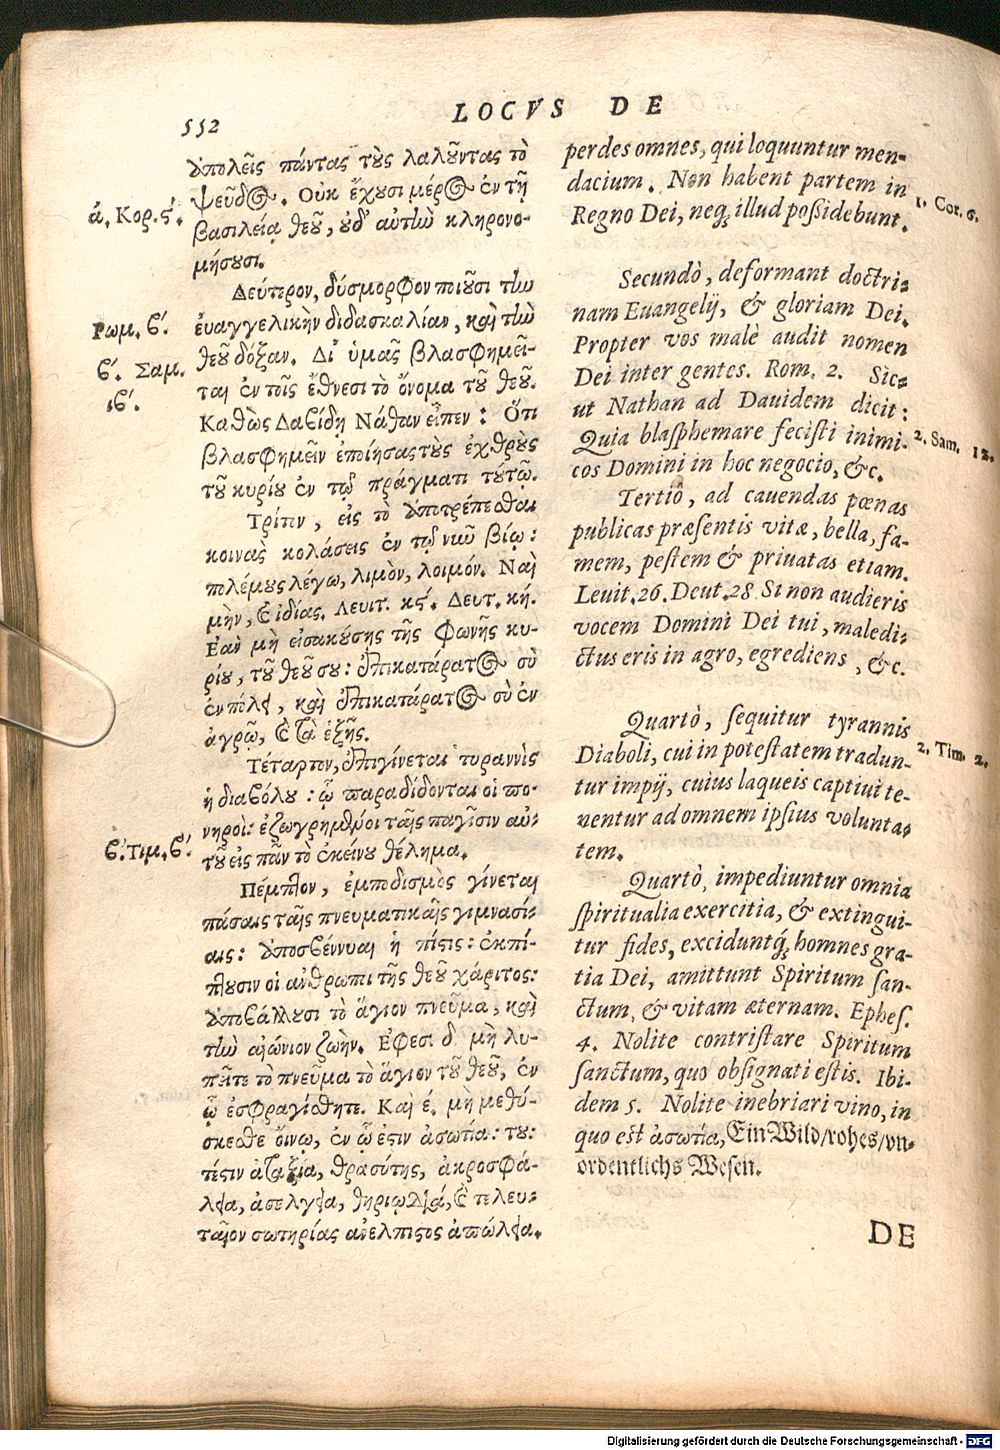 552
LOCVS DE
ἀπολεῖς πάντας τοὺς λαλοῦντας τὸ
ψεῦδος. Οὐκ ἔχουσι μέρος ἐν τῇ
ά. Κορ. ϛ΄.
βασιλείᾳ θεοῦ, οὐδ᾽ αὐτὴν κληρονο-
μήσουσι.
Δεύτερον, δύσμορφον ποιοῦσι τὴν
Ρωμ. β΄.
ἐυαγγελικὴν διδασκαλίαν, καὶ τὴν
β΄. Σαμ.
θεοῦ δόξαν. Δι᾽ ὑμᾶς βλασφημεῖ-
ιβ΄.
ται ἐν τοῖς ἔθνεσι τὸ ὄνομα τοῦ θεοῦ.
Καθὼς Δαβίδῃ Νάθαν εἶπεν: Ὅτι
βλασφημεῖν ἐποίησας τοὺς ἐχθροὺς
τοῦ κυρίου ἐν τῷ πράγματι τούτῳ.
Τρίτον, εἰς τὸ ἀποτρέπεσθαι
κοινὰς κολάσεις ἐν τῷ νῦν βίῳ:
πολέμους λέγω, λιμὸν, λοιμόν. Ναὶ
μὴν, καὶ ἰδίας. Λευιτ. κϛ΄. Δευτ. κή.
Ἐαν μὴ εἰσακούσῃς τῆς φωνῆς κυ-
ρίου, τοῦ θεοῦ σου: ἐπικατάρατος σὺ
ἐν πόλει, καὶ ἐπικατάρατος σὺ ἐν
ἀγρῷ, καὶ τὰ ἑξῆς.
Τέταρτον, ἐπιγίνεται τυραννὶς
ἡ διαβόλου: ᾧ παραδίδονται οἱ πο-
νηροὶ: ἐζωγρημένοι ταῖς παγῖσιν αὐ-
β΄. Τιμ. β΄.
τοῦ εἰς πᾶν τὸ ἐκείνου θέλημα.
Πέμπτον, ἐμποδισμὸς γίνεται
πάσαις ταῖς πνευματικαῖς γιμνασί-
αις: ἀποσβέννυται ἡ πίστις: ἐκπί-
πτουσιν οἱ ἄνθρωποι τῆς θεοῦ χάριτος:
ἀποβάλλουσι τὸ ἅγιον πνεῦμα, καὶ
τὴν αἰώνιον ζωὴν. Ἐφεσι δ. μὴ λυ-
πεῖτε τὸ πνεῦμα τὸ ἅγιον τοῦ θεοῦ, ἐν
ᾧ ἐσφραγίσθητε. Καὶ έ. μὴ μεθύ-
σκεσθε οἴνῳ, ἐν ᾧ ἐστιν ἀσωτία: του-
τέστιν ἀταξία, θρασύτης, ἀκροσφά-
λεια, ἀσέλγεια, θηριωδία, καὶ τελευ-
ταῖον σωτηρίας ἀνέλπιστος ἀπώλεια.
perdes omnes, qui loquuntur men-
dacium. Non habent partem in
1. Cor. 6.
Regno Dei, neq; illud poßidebunt.
Secundò, deformant doctri-
nam Euangelij, & gloriam Dei.
Propter vos malè audit nomen
Dei inter gentes. Rom. 2. Sic-
ut Nathan ad Dauidem dicit:
2. Sam. 12.
Quia blasphemare fecisti inimi-
cos Domini in hoc negocio, &c.
Tertiò, ad cauendas pœnas
publicas præsentis vitæ, bella, fa-
mem, pestem & priuatas etiam.
Leuit. 26. Deut. 28 Si non audieris
vocem Domini Dei tui, maledi-
ctus eris in agro, egrediens, &c.
Quartò, sequitur tyrannis
2. Tim. 2.
Diaboli, cui in potestatem tradun-
tur impij, cuius laqueis captiui te-
nentur ad omnem ipsius volunta-
tem.
Quartò, impediuntur omnia
spiritualia exercitia, & extingui-
tur fides, exciduntq; homnes gra-
tia Dei, amittunt Spiritum san-
ctum, & vitam æternam. Ephes.
4. Nolite contristare Spiritum
sanctum, quo obsignati estis. Ibi-
dem 5. Nolite inebriari vino, in
quo est ἀσωτία, Ein Wild/rohes/vn-
ordentlichs Wesen.
DE
Digitalisierung gefördert durch die Deutsche Forschungsgemeinschaft - DFG